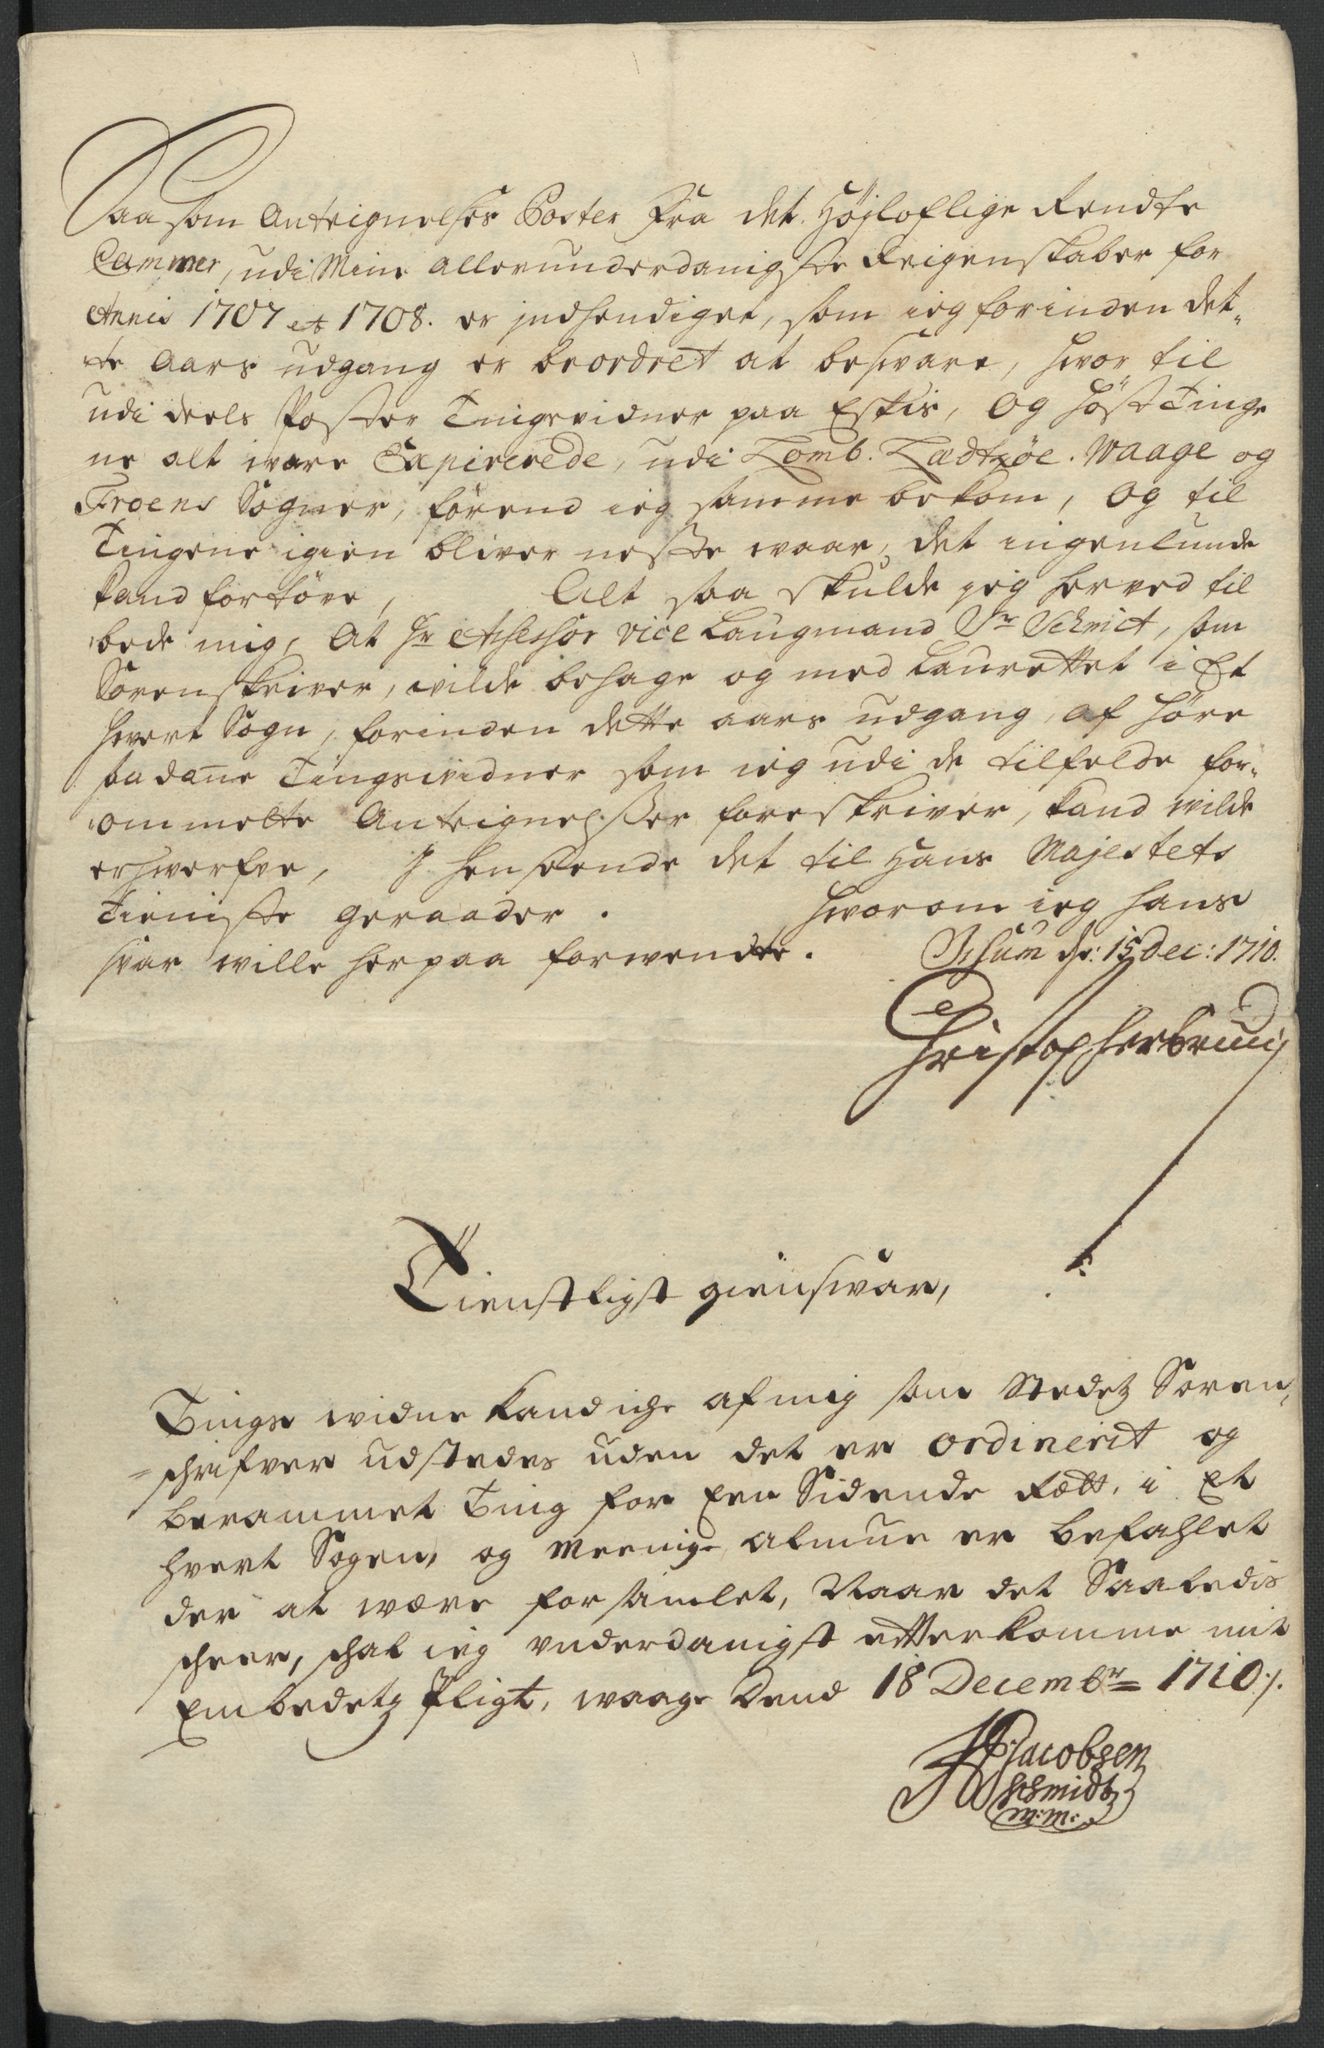 Saa som Anteignelses Poster Fra det Højloflige Rendte
Cammer, udi Mine allerunderdanigste Reigenskaber for
Annis 1707 et 1708. er jndhendiget, som ieg forinden det-
te Aars udgang er beordret at besvare, hvor til
udi deels Poster Tingsvidner paa Estis, og Høst Tinge
ne alt vare Expirerede, udi Lomb. Ladtzøe. Waage og
Froens Sogner, førend ieg samme bekom, og til
Tingene igien bliver neste vaar, det ingenlunde
kand fortøve, Alt saa skulde jeg herved til
bede mig, At Hr Assessor vice Laugmand Sr Schmit, som
Sorenskriver, vilde behage og med Laurettet i Et
hvert Sogn, forinden dette aars udgang, af høre
sadane Tingsvidner som ieg udi de tilfelde for-
ommelte Anteignelsser foreskriver, kand vilde
erhverfve, J henseende det til Hans Majestets
Tieniste geraader. Hvorom ieg hans
svar ville her paa forvendte. dr: 15 Dec: 1710.
Christopher
Tienstligst giensvar,
Tings widne kand iche af mig som Stedetz Soren-
schrifver udstedes uden det er ordinerit og
berammet Ting for Een Sidende Rætt, i Et
hvert Sogen, og Meenige Almue er befahlet
der at være forsamlet, Naar det Saaledis
scheer, schal ieg underdanigst etterkomme mit
Embedetz Pligt, waage Dend 18 Decembr 1710 ./.
Jacobsen
Schmidt
m: m: